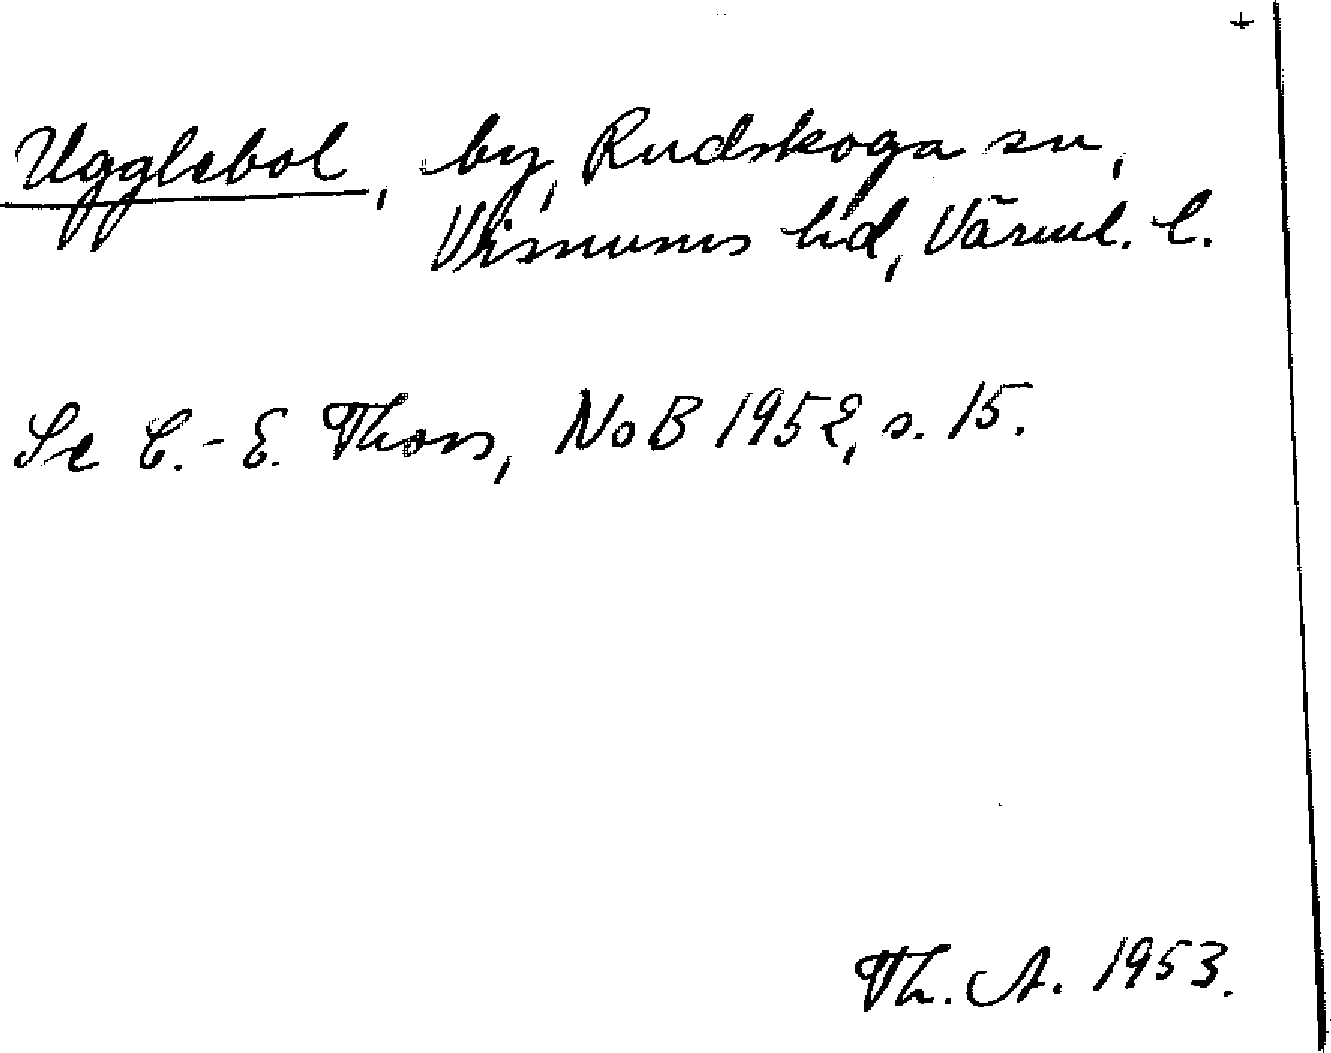 Ugglebol, by, Rudskoga sn,
Visnums hd, Värml. l.
Se C.-E. Thors, NoB 1952, s. 15.
Th. A. 1953.